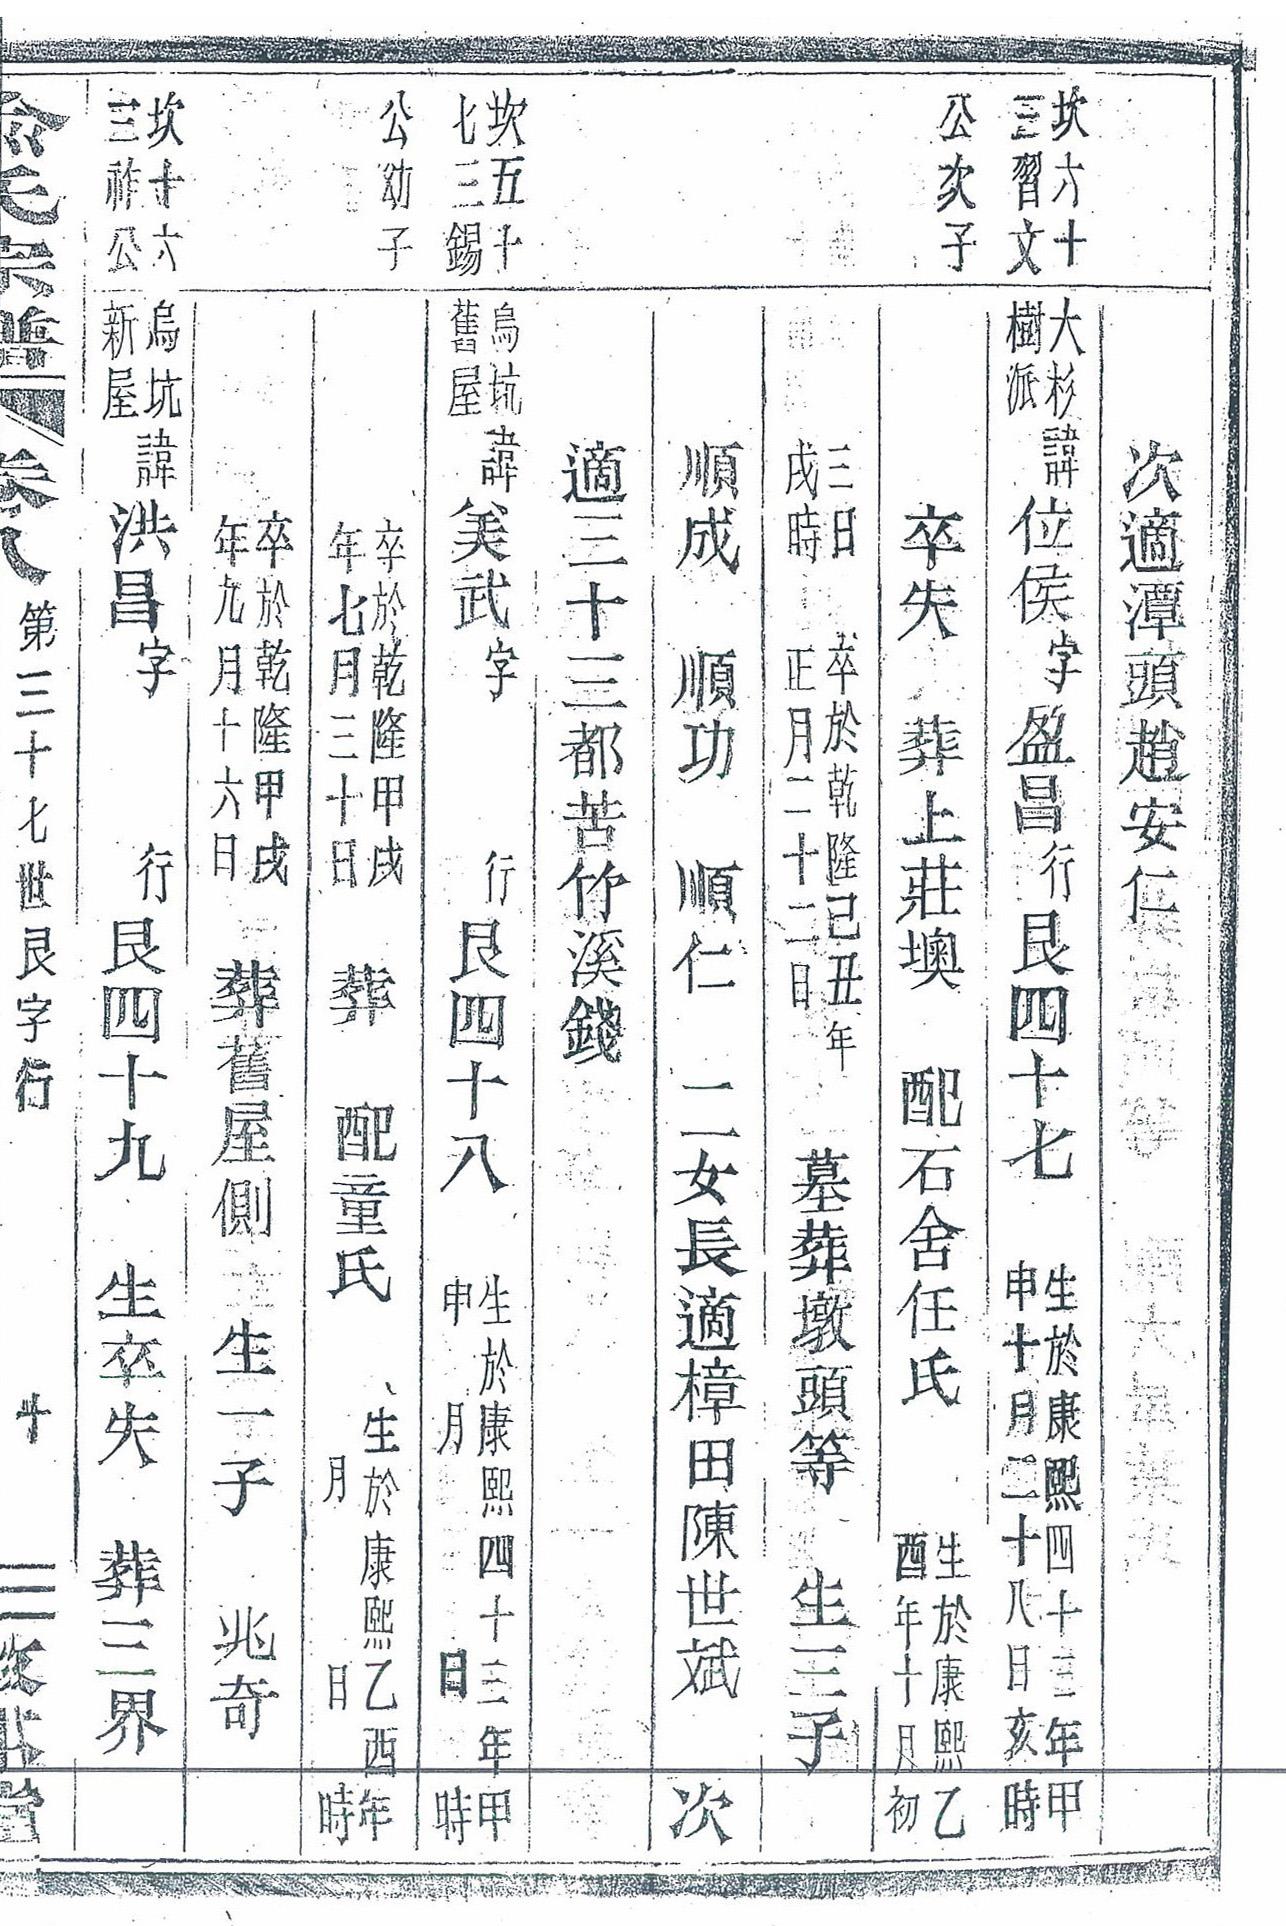 次適潭頭趙安仁
坎六十三習文 大杉樹派 諱位侯字盈昌行艮四十七 生於康熙四十三年甲申十月二十八日亥時
公次子 卒失 葬上莊墺 配石舍任氏 生於康熙乙酉年十月初
三日戌時 卒於乾隆己丑年正月二十二日 墓葬墩頭等 生三子
順成 順功 順仁 二女長適樟田陳世斌 次
適三十三都苦竹溪錢
坎五十七三錫 烏坑舊屋 諱美武字 行艮四十八 生於康熙四十三年甲申 月 日 時
公幼子 卒於乾隆甲戌年七月三十日 葬 配童氏 生於康熙乙酉年 月 日 時
卒於乾隆甲戌年九月十六日 葬舊屋側 生一子 兆奇
坎十六三祚公 烏坑新屋 諱洪昌字 行艮四十九 生卒失 葬三界
俞氏宗譜 卷八 第三十七世艮字行 十